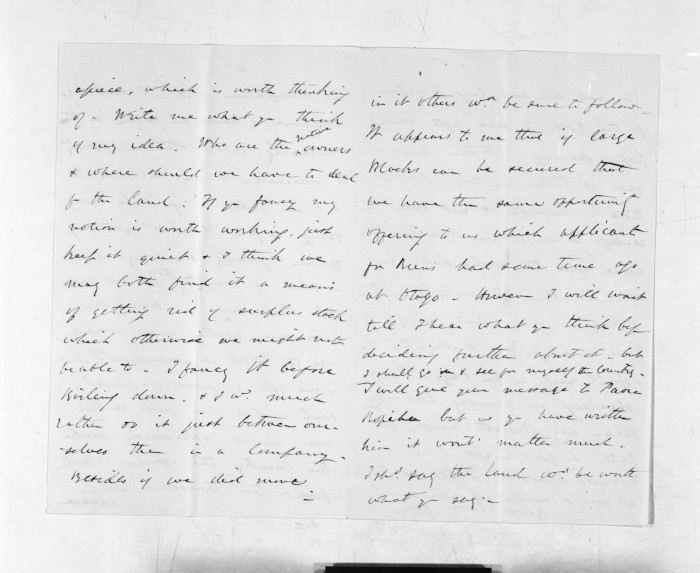 apiece, which is worth thinking
of - Write me what yo think
of my idea. Who are the native owners
& where should we have to deal
for the land. If yo fancy my
notion is worth working, just
keep it quiet & I think we
may both find it a means
of getting rid of surplus stock
which otherwise we might not
be able to - I fancy it before
Boiling down. & I wd. much
rather do it just between our-
-selves than in a Company -
Besides if we did move
in it others wd. be sure to follow -
It appears to me that if large
Blocks can be secured that
we have the same opportunity
offering to us which applicants
for Runs had some time ago
at Otago - However I will wait
till I hear what yo think bef
deciding further about it - but
I shall go & see for myself the Country -
I will give your message to Paora
but as yo have written
him it wont' matter much.
I shd. say the land wd. be worth
what yo say -